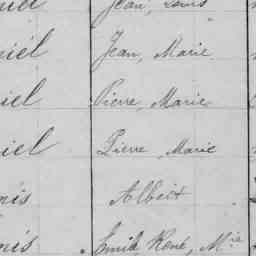 Jean, Louis
iel Jean, Marie
iel Pierre, Marie
iel Pierre, Marie
nis Albert
nis Emile René, Mie